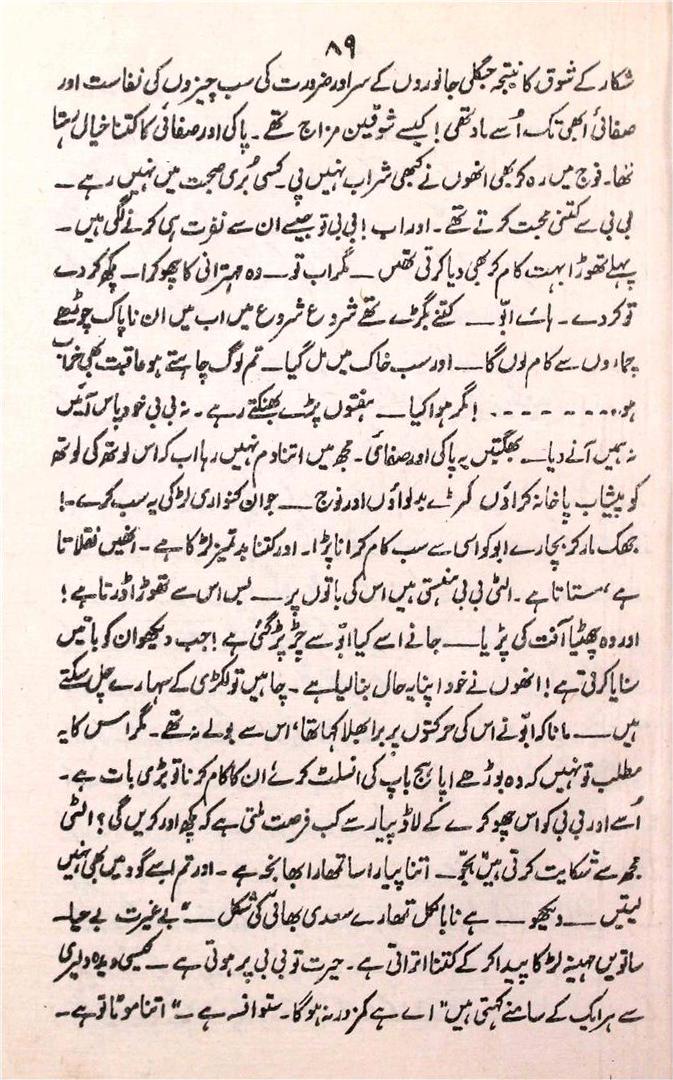 ۸۹
شکار کے شوق کا نتیجہ جنگلی جانوروں کے سر اور ضرورت کی سب چیزوں کی نفاست اور
صفائی ابھی تک اُسے یاد تھی! کیسے شوقین مزاج تھے۔ پاکی اور صفائی کا کتنا خیال رہتا
تھا۔ فوج میں رہ کر بھی انھوں نے کبھی شراب نہیں پی۔ کسی بُری صحبت میں نہیں رہے ۔
بی بی سے کتنی محبت کرتے تھے۔ اور اب! بی بی تو جیسے ان سے نفرت ہی کرنے لگی ہیں۔
پہلے تھوڑا بہت کام کر بھی دیا کرتی تھیں ۔ مگر اب تو ۔ وہ مہترانی کا چھوکرا ۔ کچھ کر دے
تو کر دے ۔ ہائے ابّو ۔ کتنے بگڑے تھے شروع شروع میں اب میں ان ناپاک چوٹھے
چماروں سے کام لوں گا ۔ اور سب خاک میں مل گیا ۔ تم لوگ چاہتے ہو عاقبت بھی خراب
ہو ۔ - - - - - - ! مگر ہوا کیا ۔ ہفتوں پڑے بھنکتے رہے ۔ نہ بی بی خود پاس آئیں
نہ ہمیں آنے دیا ۔ بھگتیں یہ پاکی اور صفائی ۔ مجھ میں اتنا دم نہیں رہا اب کہ اس لوتھ کی لوتھ
کو پیشاب پاخانہ کراؤں کپڑے بدلواؤں اور نوج ۔ جوان کنواری لڑکی یہ سب کرے ۔!
جھک مار کر بچارے ابو کو اسی سے سب کام کرانا پڑا۔ اور کتنا بدتمیز لڑکا ہے ۔ انھیں نقلاتا
ہے، ستاتا ہے ۔ الٹی بی بی ہنستی ہیں اس کی باتوں پر ۔ بس اس سے تھوڑا ڈرتا ہے!
اور وہ چھٹیا آفت کی پڑیا ۔ جانے اسے کیا ابّو سے چِڑ پڑ گئی ہے! جب دیکھو ان کو باتیں
سنایا کرتی ہے! انھوں نے خود اپنا یہ حال بنا لیا ہے ۔ چاہیں تو لکڑی کے سہارے چل سکتے
ہیں ۔ مانا کہ ابّو نے اس کی حرکتوں پر برا بھلا کہا تھا، اس سے بولے نہ تھے ۔ مگر اس کا یہ
مطلب تو نہیں کہ وہ بوڑھے اپاہج باپ کی انسلٹ کرئے ان کا کام کرنا تو بڑی بات ہے ۔
اُسے اور بی بی کو اس چھوکرے کے لاڈ پیار سے کب فرصت ملتی ہے کہ کچھ اور کریں گی؟ الٹی
مجھ سے شکایت کرتی ہیں" بجّو ۔ اتنا پیارا سا تمھارا بھانجا ہے ۔ اور تم اسے گود میں بھی نہیں
لیتیں ۔ دیکھو ۔ ہے نا بالکل تمھارے سعدی بھائی کی شکل ۔" بے غیرت بے حیا۔
ساتویں مہینے لڑکا پیدا کر کے کتنا اتراتی ہے ۔ حیرت تو بی بی پر ہوتی ہے ۔ کیسی دیدہ دلیری
سے ہر ایک کے سامنے کہتی ہیں" اے ہے کمزور نہ ہوگا ۔ ستوانسہ ہے ۔" اتنا موٹا تو ہے ۔